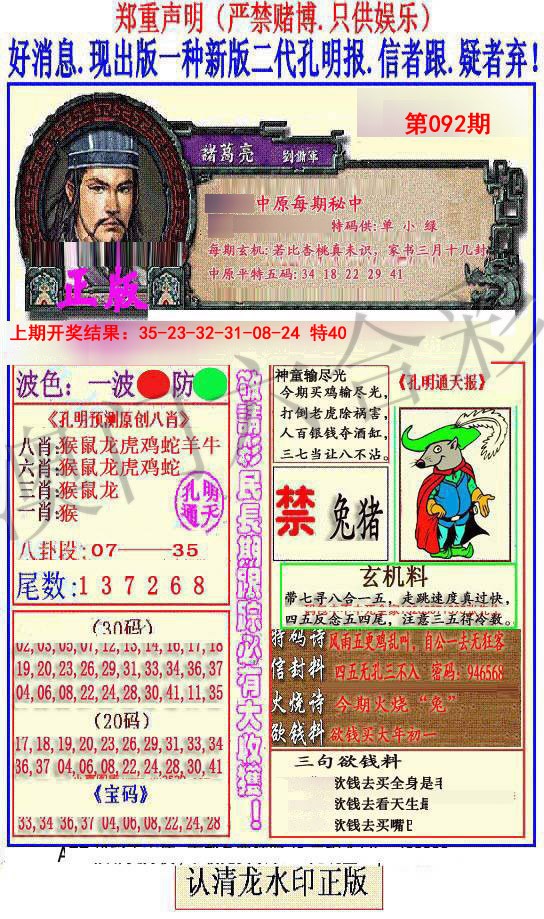 郑重声明（严禁赌博.只供娱乐）
好消息.现出版一种新版二代孔明报.信者跟.疑者弃！
第092期
諸葛亮 劉備軍
中原每期秘中
特码供:单 小 绿
每期玄机:若比杏桃真未识，家书三月十几封
中原平特五码: 34 18 22 29 41
正版
上期开奖结果：35-23-32-31-08-24 特40
波色：一波 防
《孔明预测原创八肖》
八肖:猴鼠龙虎鸡蛇羊牛
六肖:猴鼠龙虎鸡蛇
三肖:猴鼠龙
一肖:猴
孔明
通天
八卦段:07——35
尾数:1 3 7 2 6 8
(30码)
02,03,05,07,12,13,14,16,17,18
19,20,23,26,29,31,33,34,36,37
04,06,08,22,24,28,30,41,11,35
(20码)
17,18,19,20,23,26,29,31,33,34
36,37 04,06,08,22,24,28,30,41
《宝码》
33,34 36,37 04,06,08,22,24,28
敬請彩民長期跟踪必有大收獲！
神童输尽光
今期买鸡输尽光，
打倒老虎除祸害，
人百银钱夺酒缸，
三七当让八不沾。
《孔明通天报》
禁 兔猪
玄机料
带七寻八合一五，走跳速度真过快，
四五反念五四尾，注意三五得冷数。
特码诗 风雨五更鸡乱叫，自公一去无狂客
信封料 四五无孔三不入 密码：946568
火烧诗 今期火烧“兔”
欲钱料 欲钱买大年初一
三句欲钱料
钱去买全身是
钱去看天生
钱去买嘴
认清龙水印正版